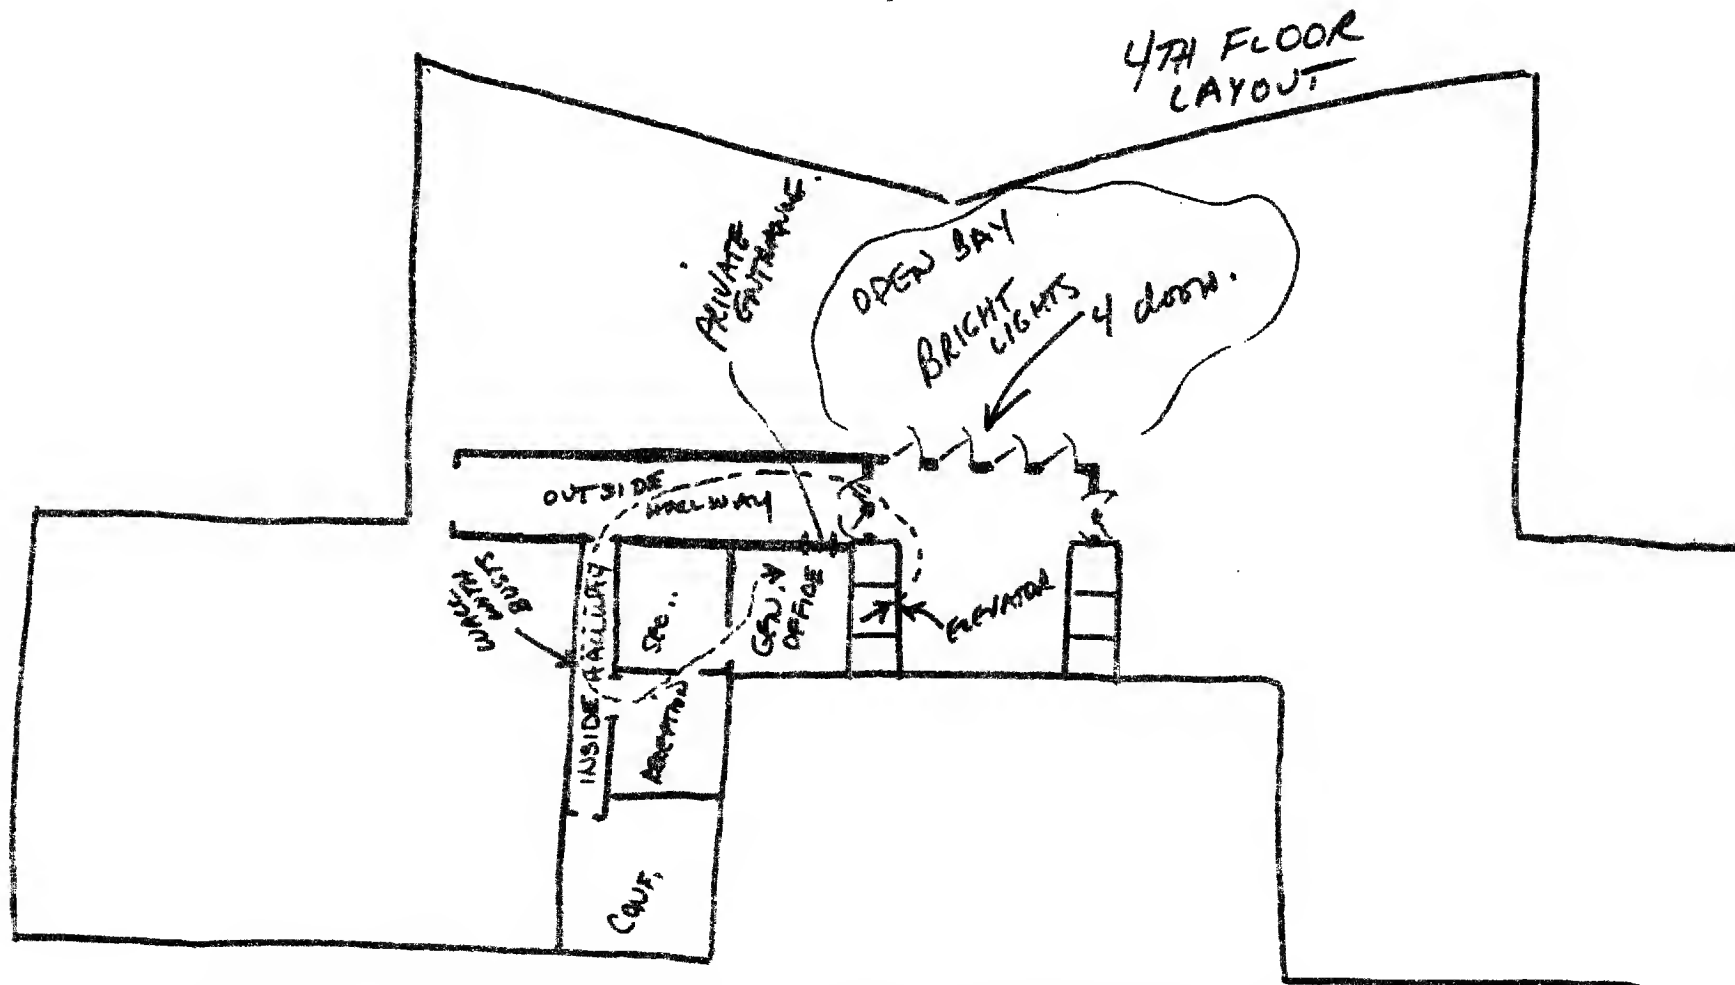 4TH FLOOR
LAYOUT
PRIVATE
ENTRANCE
OPEN BAY
BRIGHT
LIGHTS
4 doors.
OUTSIDE
HALLWAY
WALL
WITH
BUSTS
INSIDE HALLWAY
SEC..
GEN.
OFFICE
ELEVATOR
RECEPTION
CONF.